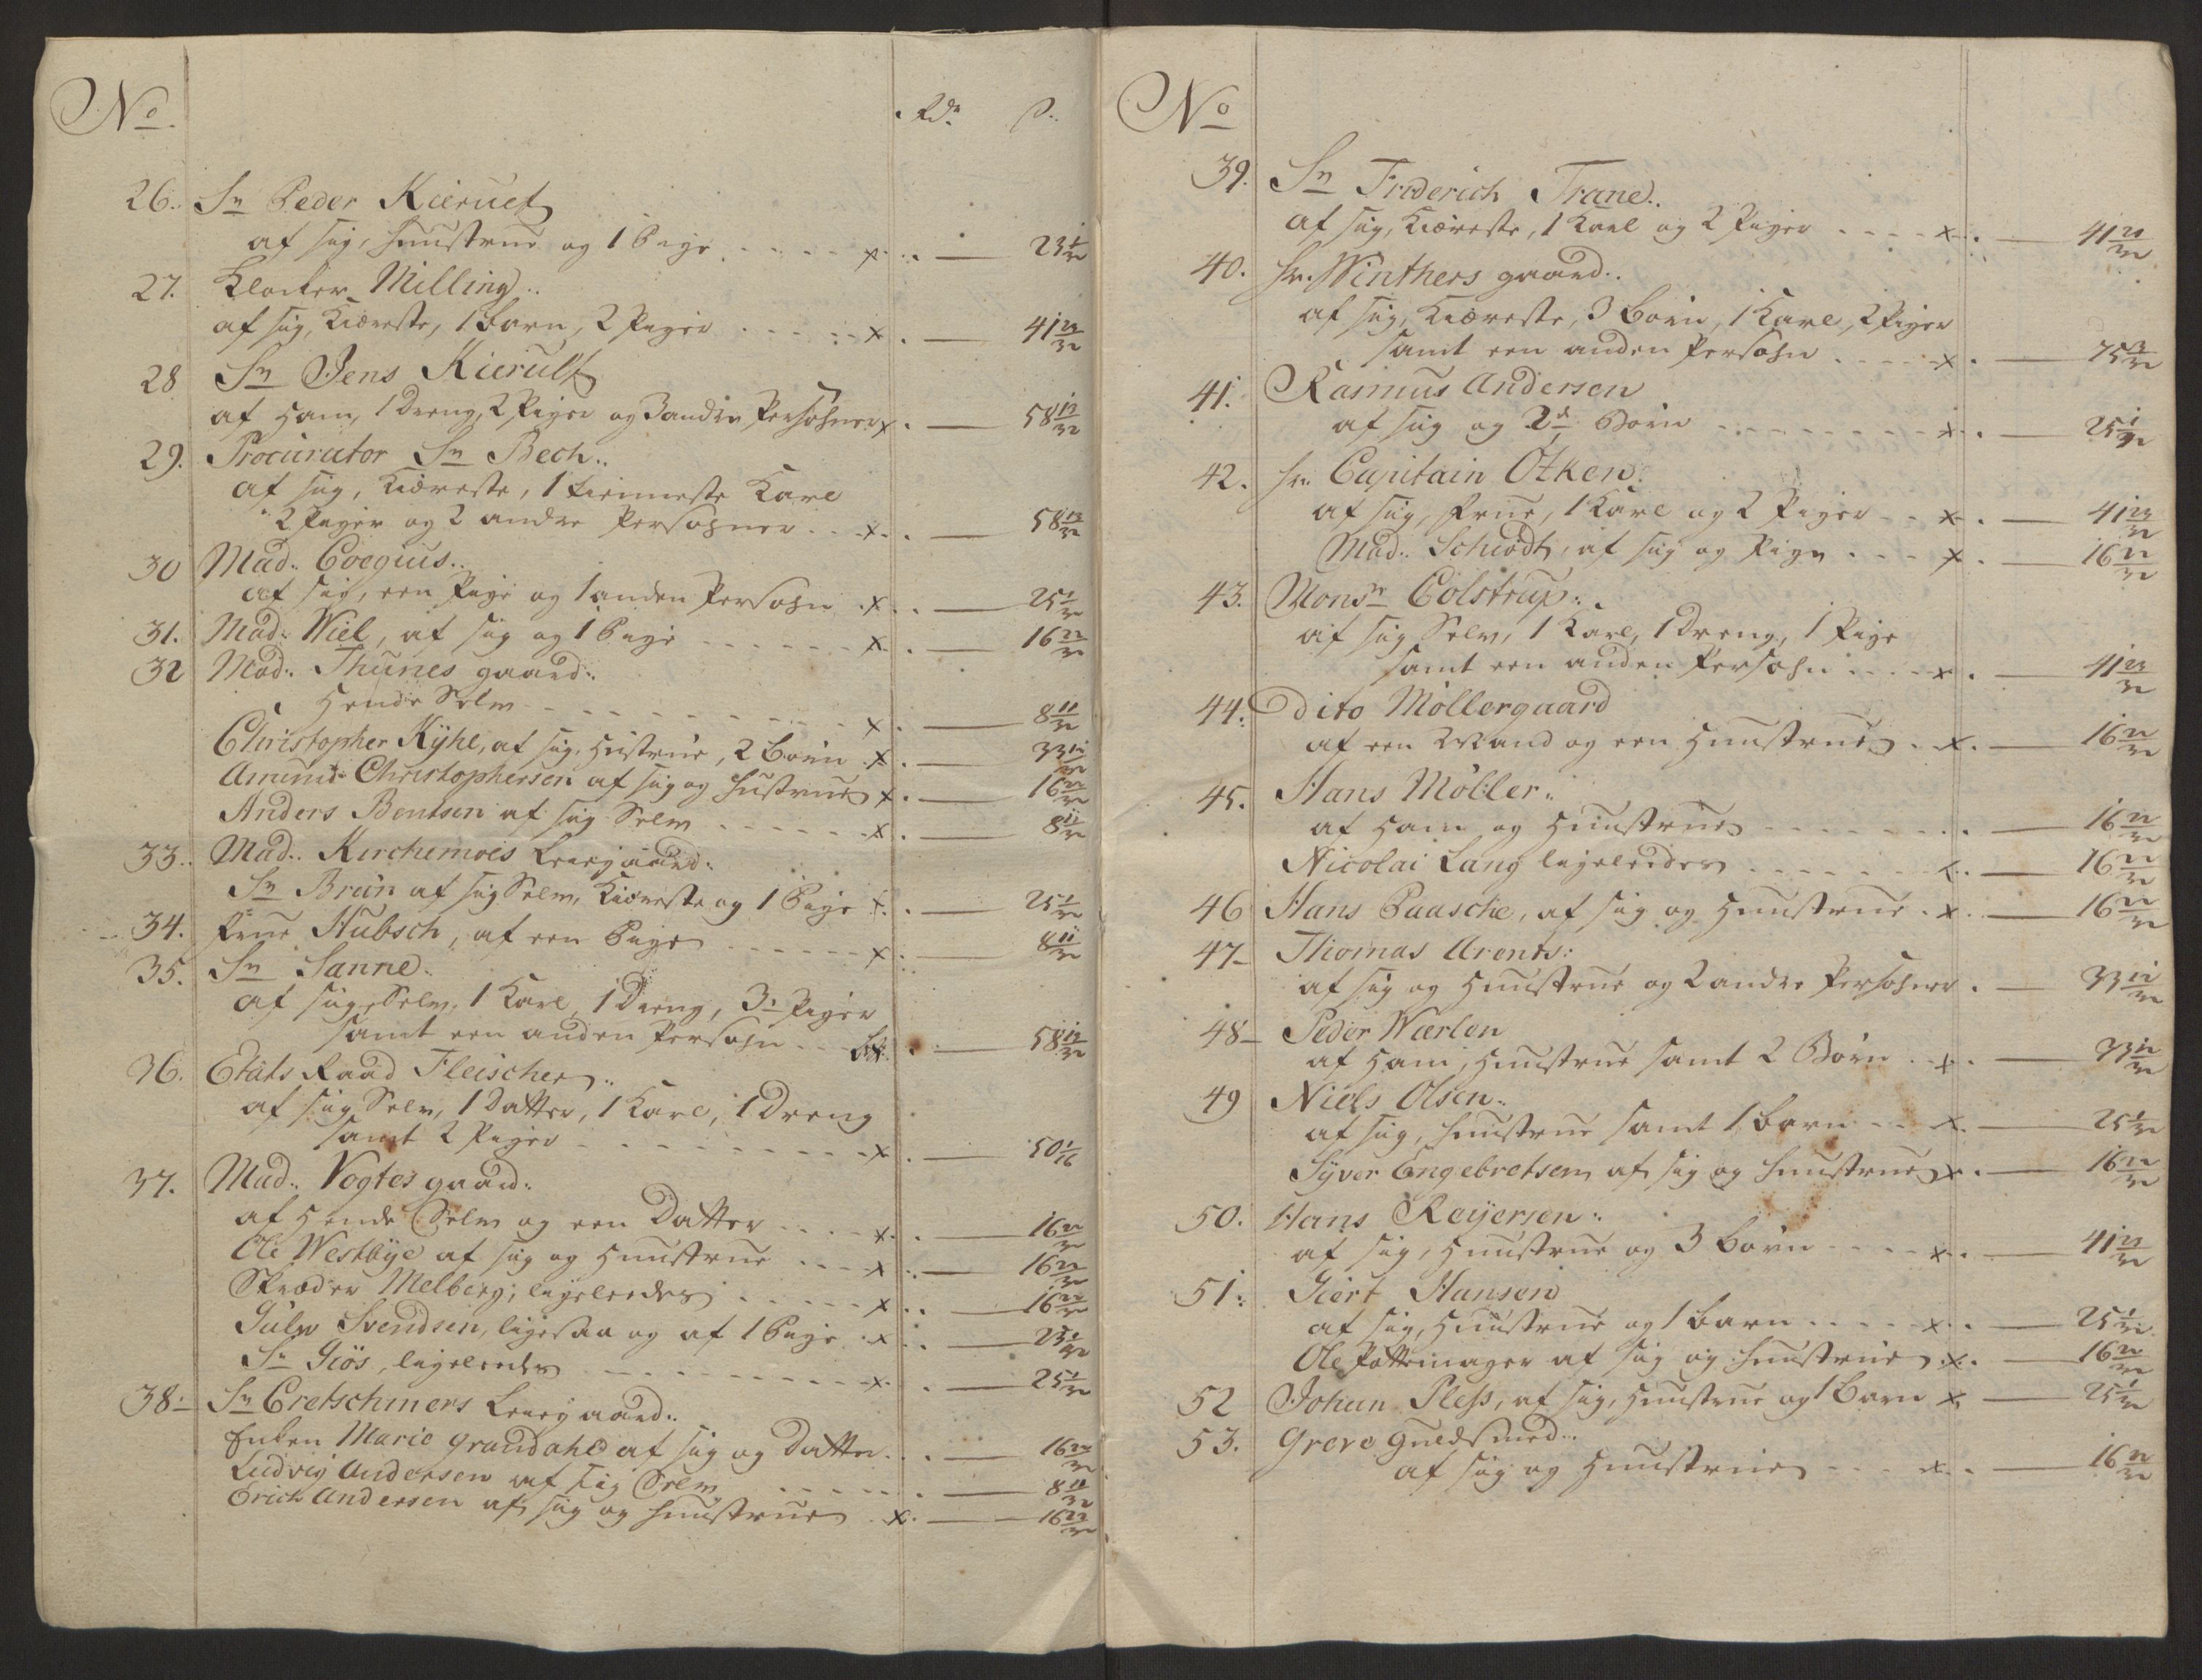 No. Rdr. s.
26. Sr. Peder Kierulf
af sig, huustrue og 1 Pige - - - - x . — 25 1/32
27. Klocker Milling..
af sig, Kiæreste, 1 barn, 2 Piger - - - - x . — 41 23/32
28 Sr. Jens Kierulf
af ham, 1 dreng, 2 Piger og 3 andre Persohner x . — 58 13/32
29. Procurator Sr. Bech..
af sig, Kiæreste, 1 Karl
2 Piger og 2 andre Persohner . . x . — 58 13/32
30 Mad. Coegius..
af sig, een Pige og 1 anden Persohn . x . — 25 1/32
31. Mad. Wiel, af sig og 1 Pige - - - - x . — 16 22/32
32 Mad. Thunes gaard..
hende Selv - - - - x . — 8 11/32
Christopher Kyhl, af sig, hustrue, 2 børn . x . — 33 12/32
Amund Christophersen af sig og hustrue x . — 16 22/32
Anders Bentsen af sig Selv - - - - x . — 8 11/32
33. Mad. Kirchemoes Leyegaard.
Sr. Brun af sig Selv, Kiæreste og 1 Pige x . — 25 1/32
34. Frue Hubsch, af een Pige - - - - x . — 8 11/32
35. Sr. Sanne.
af sig Selv, 1 Karl, 1 Dreng, 3 Piger
samt een anden Persohn - - x . — 58 13/32
36. Etats Raad Fleischer..
af sig Selv, 1 Datter, 1 Karl, 1 Dreng
samt 2 Piger - - - - x . — 50 1/16
37. Mad. Vogtes gaard.
af hende Selv og een Datter - - - x . — 16 22/32
Ole Westbye af sig og huustrue - - - x . — 16 22/32
Skræder Melberg, ligeleedes - - - x . — 16 22/32
Giulv Svendsen, ligesaa og af 1 Pige . x . — 25 1/32
Sr. Giøs, ligeleedes - - - - x . — 25 1/32
38. Sr. Cretschmers Leyegaard..
Enken Marie Grandahl af sig og Datter . . — 16 22/32
Ludvig Andersen af sig Selv - - - . — 8 11/32
Erich Andersen af sig og huustrue . x . — 16 22/32
No
39. Sr. Friderich Trane..
af sig, Kiæreste, 1 Karl og 2 Piger - - - x . — 41 23/32
40. Hr. Winthers gaard..
af sig, Kiæreste, 3 børn, 1 Karl, 2 Piger
samt een anden Persohn - - - x . — 75 3/32
41. Rasmus Andersen
af sig og 2de Børn - - - - x . — 25 1/32
42. Hr. Capitain Otken.
af sig, Frue, 1 Karl og 2 Piger - - x . — 41 23/32
Mad. Schiødt, af sig og Pige - - - x . — 16 22/32
43. Monsr. Colstrup..
af sig Selv, 1 Karl, 1 Dreng, 1 Pige
samt een anden Persohn - - - x . — 41 23/32
44. Dito Møllergaard
af een Mand og een huustrue . x . — 16 22/32
45. Hans Møller..
af ham og huustrue - - - - . — 16 22/32
Nicolai Lang ligeleedes - - - - x . — 16 22/32
46 Hans Paasche, af sig og huustrue . x . — 16 22/32
47- Thomas Arents:
af sig og huustrue og 2 andre Persohner . — 33 12/32
48- Peder Wærlen
af ham, huustrue samt 2 Børn - x . — 33 12/32
49 Niels Olsen..
af sig, huustrue samt 1 barn - - x . — 25 1/32
Syver Engebretsen af sig og huustrue x . — 16 22/32
50. Hans Reyersen..
af sig, huustrue og 3 børn - - - x . — 41 23/32
51. Giert Hansen
af sig, huustrue og 1 barn - - - x . — 25 1/32
Ole Pottemager af sig og huustrue x . — 16 22/32
52 Johan Pless, af sig, huustrue og 1 Barn x — 25 1/32
53. Greve Guldsmed..
af sig og huustrue - - - x . — 16 22/32